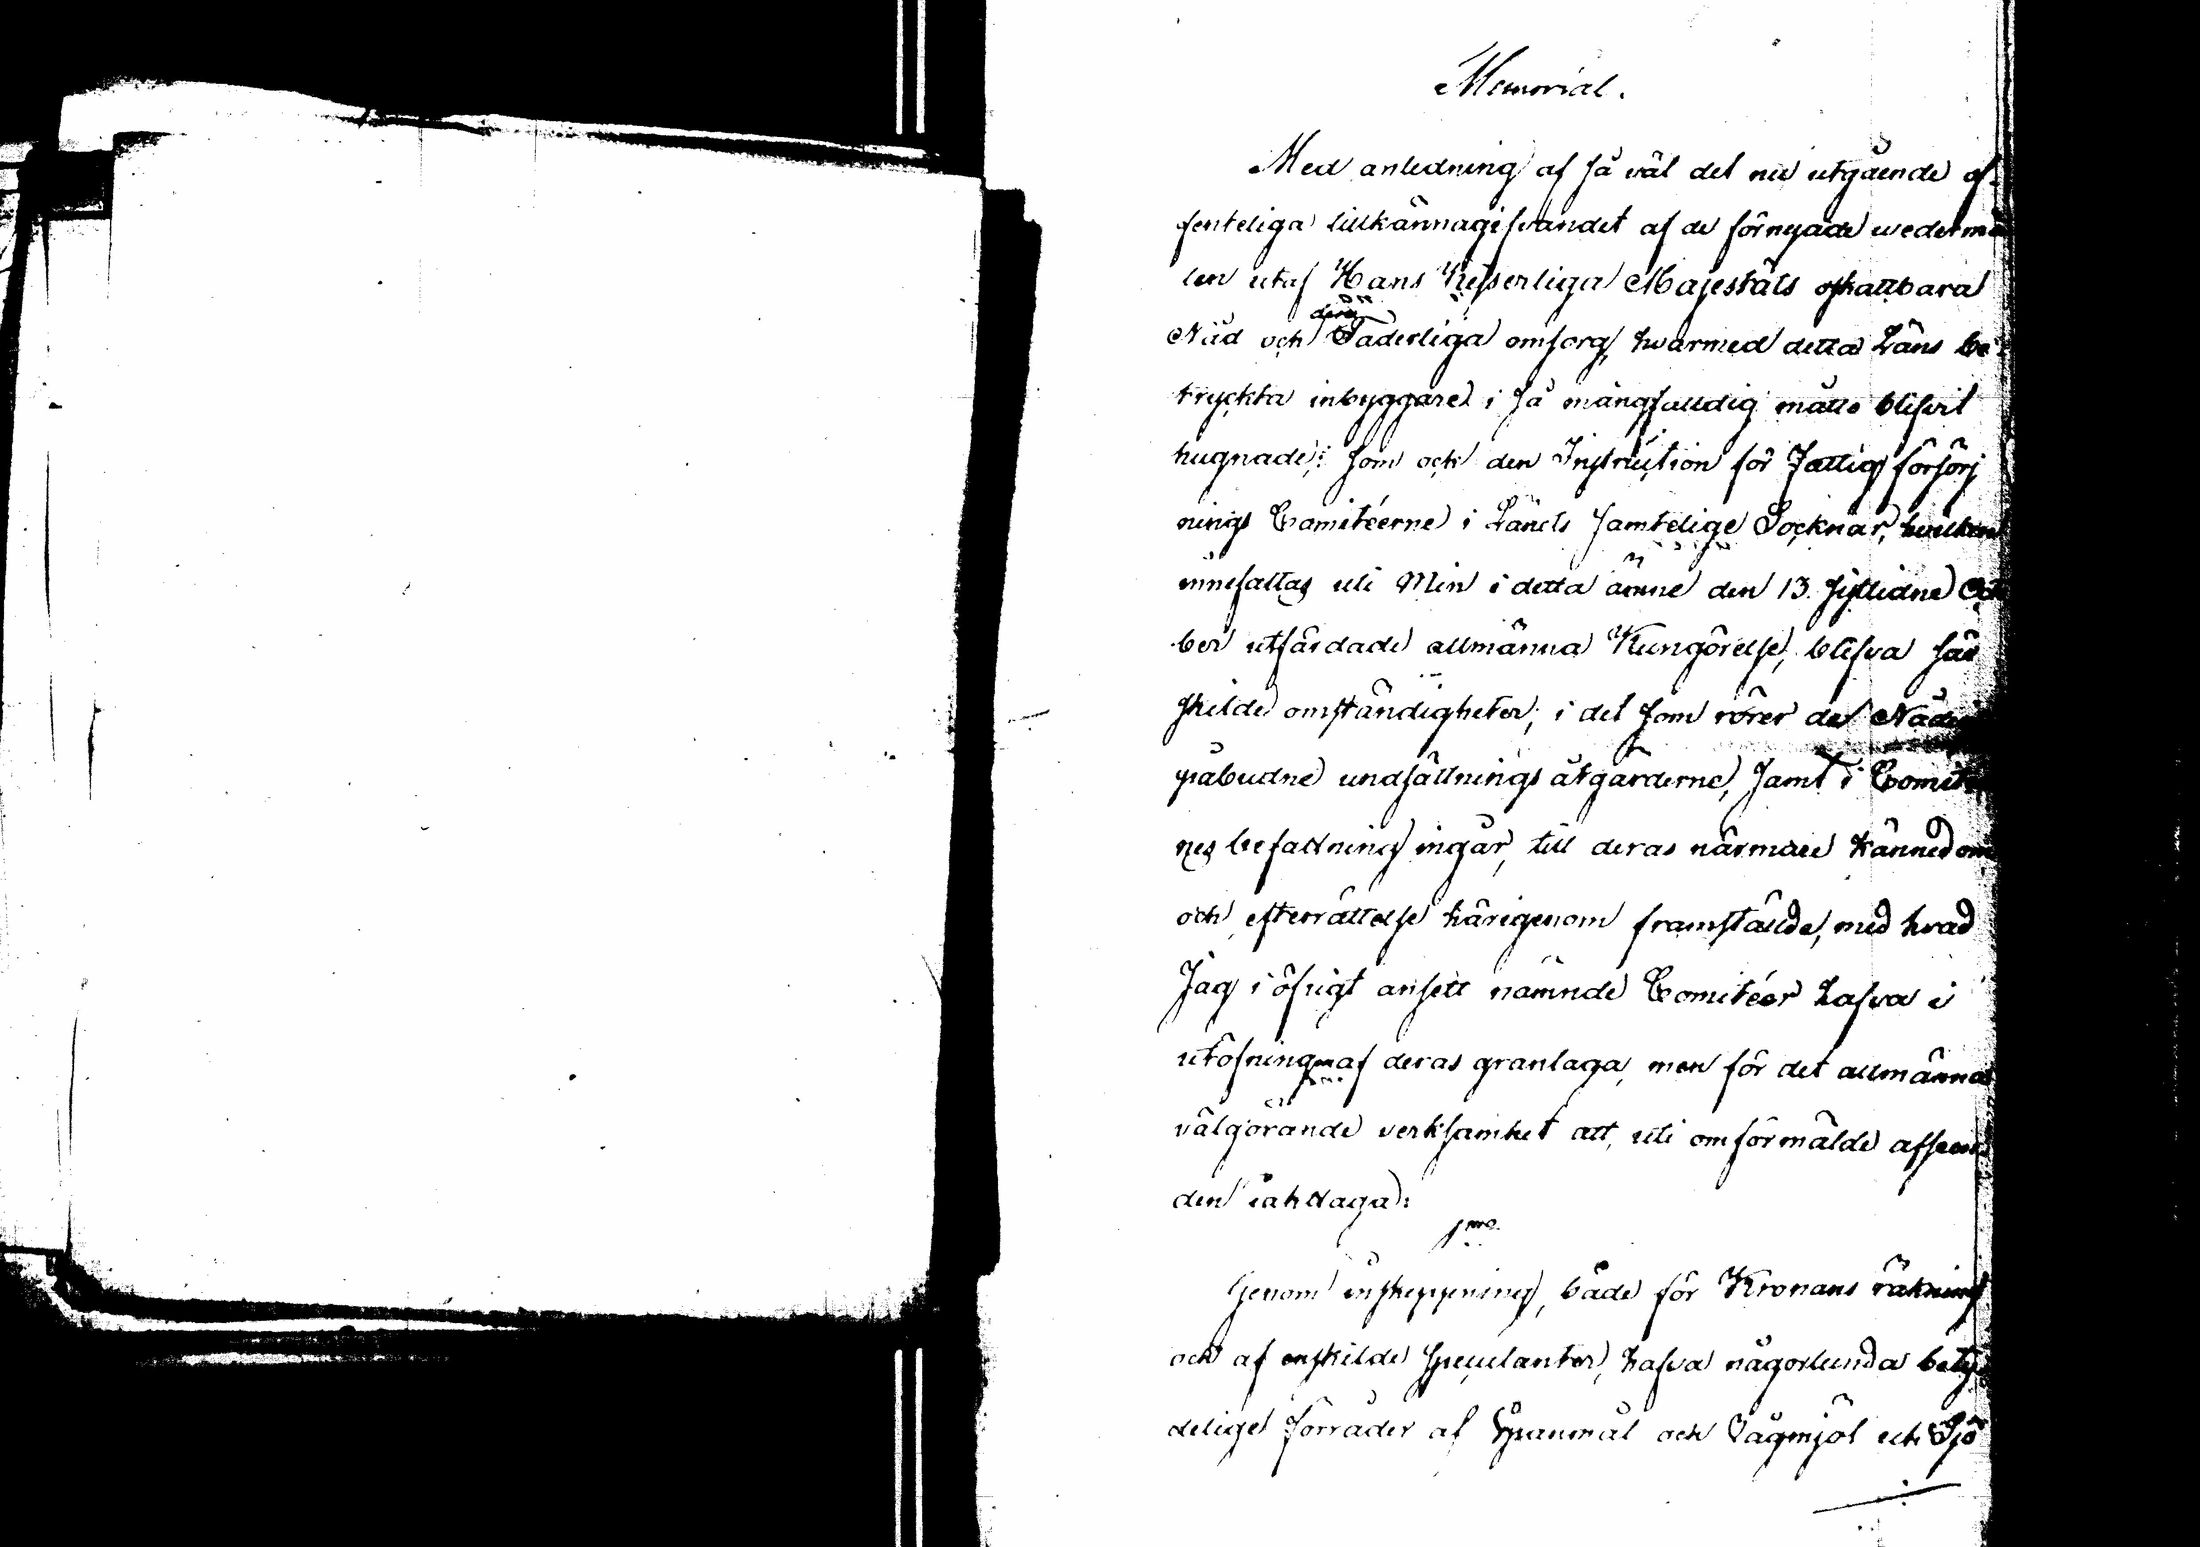 Memorial.
Med anledning af så väl det nu utgående of-
fenteliga tillkännagifvandet af de förnyade wedermä
len utaf Hans Kejserliga Majestäts oskattbara
Nåd och dess Faderliga omsorg, hvarmed detta Läns be-
tryckta inbyggare i så mångfalldig måtto blifvit
hugnade; som och den Instruction för Fattigförsörj
nings Comitéerne i Länets samtelige Socknar, hvilken
innefattas uti Min i detta ämne den 13. sistledne Octo
ber utfärdade allmänna Kungörelse, blifva sär
skilde omständigheter, i det som rörer de i Nåder
påbudne undsättnings åtgärderne, samt i Comitéer
nes befattning ingår, till deras närmare kännedom
och efterrättelse härigenom framstälde, med hvad
Jag i öfrigt ansett nämnde Comitéer hafva i
utöfningen af deras granlaga, men för det allmänna
välgörande verksamhet att, uti omförmälde afseen-
den iakttaga:
1mo
Genom inskeppning, både för Kronans räkning
och af enskilde speculanter, hafva någorlunda bety-
delige förråder af Spanmål och Rågmjöl ech Sjö